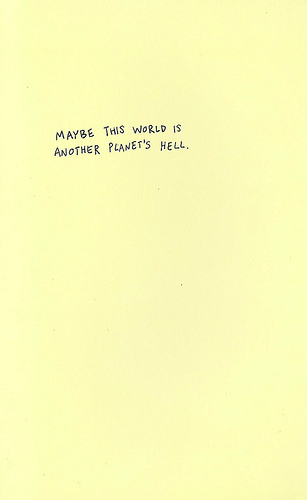 MAYBE THIS WORLD IS
ANOTHER PLANET'S HELL.